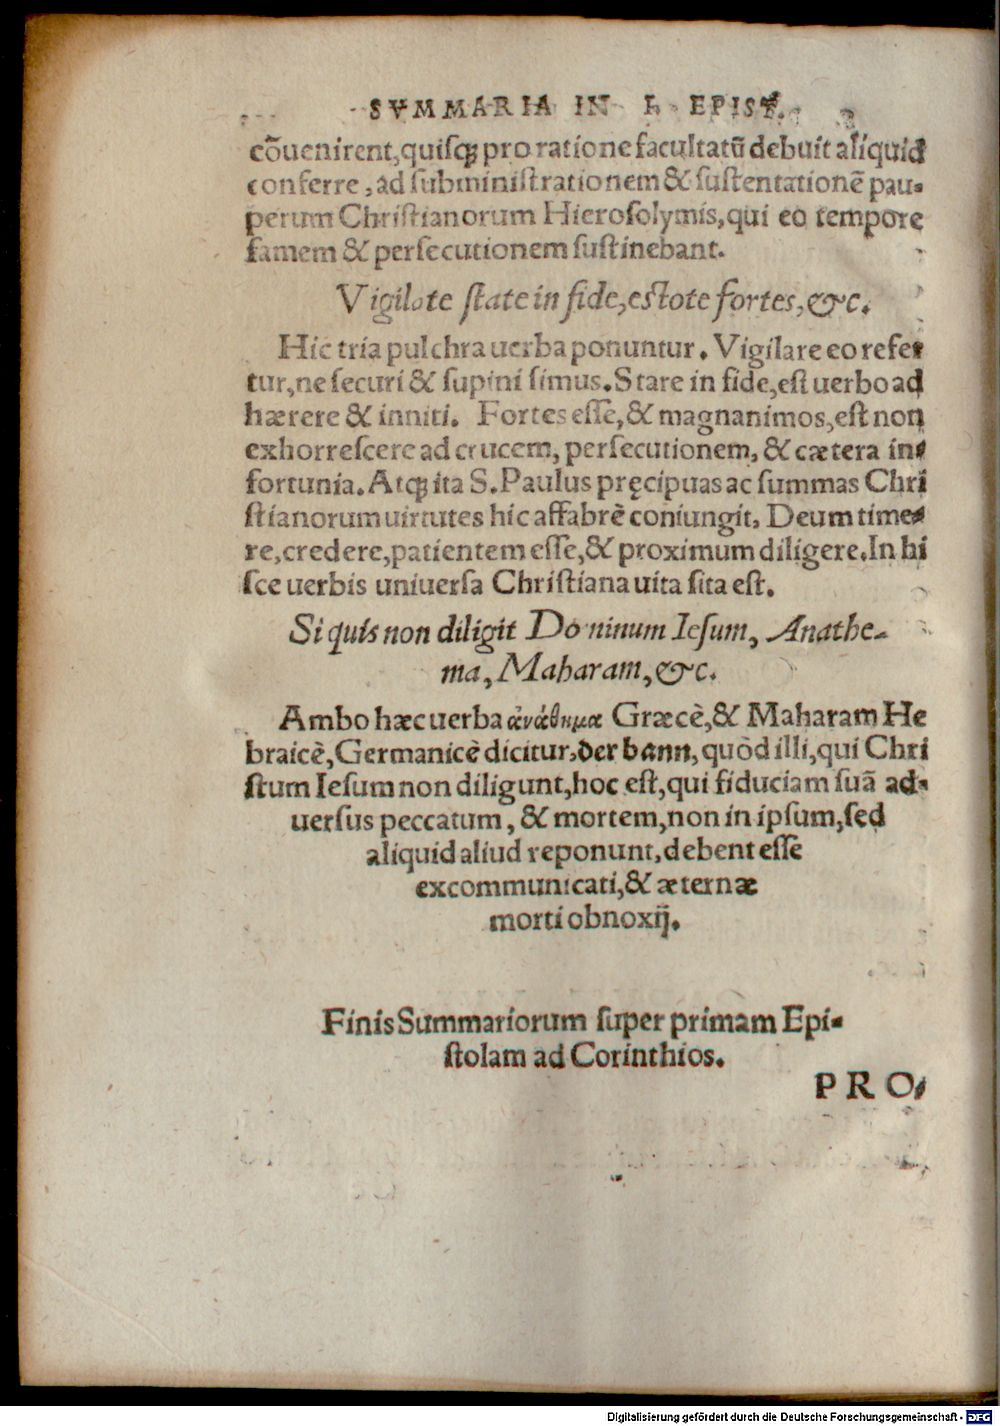 SVMMARIA IN I. EPIST.
cōuenirent,quisq; pro ratione facultatū debuit aliquid
conferre, ad subministrationem & sustentationē pau-
perum Christianorum Hierosolymis,qui eo tempore
famem & persecutionem sustinebant.
Vigilate state in fide,estote fortes,&c.
Hic tria pulchra uerba ponuntur. Vigilare eo refer
tur,ne securi & supini simus. Stare in fide,est uerbo ad
hærere & inniti. Fortes esse,& magnanimos,est non
exhorrescere ad crucem, persecutionem, & cætera in-
fortunia. Atq; ita S. Paulus pręcipuas ac summas Chri
stianorum uirtutes hic affabrè coniungit, Deum time-
re,credere,patientem esse,& proximum diligere. In hi
sce uerbis uniuersa Christiana uita sita est.
Si quis non diligit Dominum Iesum, Anathe-
ma, Maharam,&c.
Ambo hæc uerba ἀνάθημα Græcè,& Maharam He
braicè,Germanicè dicitur,der bann,quòd illi,qui Chri
stum Iesum non diligunt,hoc est,qui fiduciam suā ad-
uersus peccatum, & mortem,non in ipsum,sed
aliquid aliud reponunt,debent esse
excommunicati,& æternæ
morti obnoxij.
Finis Summariorum super primam Epi-
stolam ad Corinthios.
PRO-
Digitalisierung gefördert durch die Deutsche Forschungsgemeinschaft - DFG